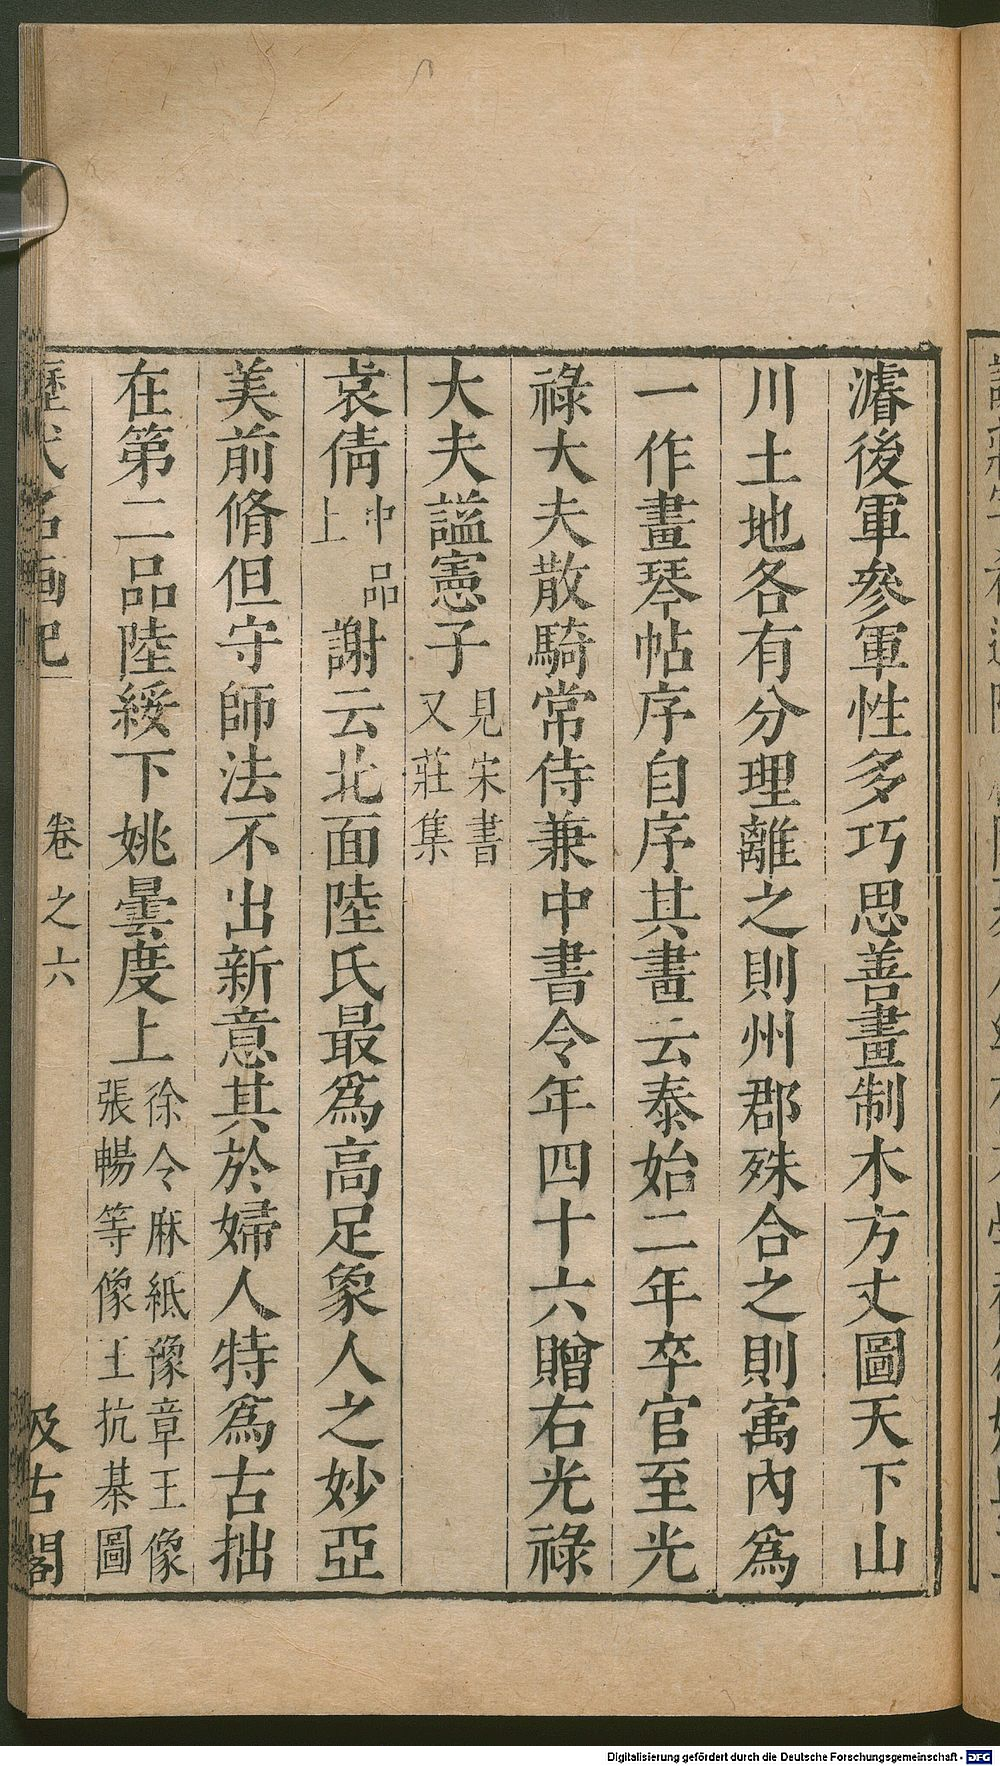 濬後軍參軍性多巧思善畫制木方丈圖天下山
川土地各有分理離之則州郡殊合之則寓內爲
一作畫琴帖序自序其畫云泰始二年卒官至光
祿大夫散騎常侍兼中書令年四十六贈右光祿
大夫謚憲子見宋書又莊集
袁倩中品上謝云北面陸氏最爲高足象人之妙亞
美前脩但守師法不出新意其於婦人特爲古拙
在第二品陸綏下姚曇度上徐令麻紙豫章王像張暢等像王抗棊圖
歷代名画记
卷之六
汲古閣
Digitalisierung gefördert durch die Deutsche Forschungsgemeinschaft - DFG